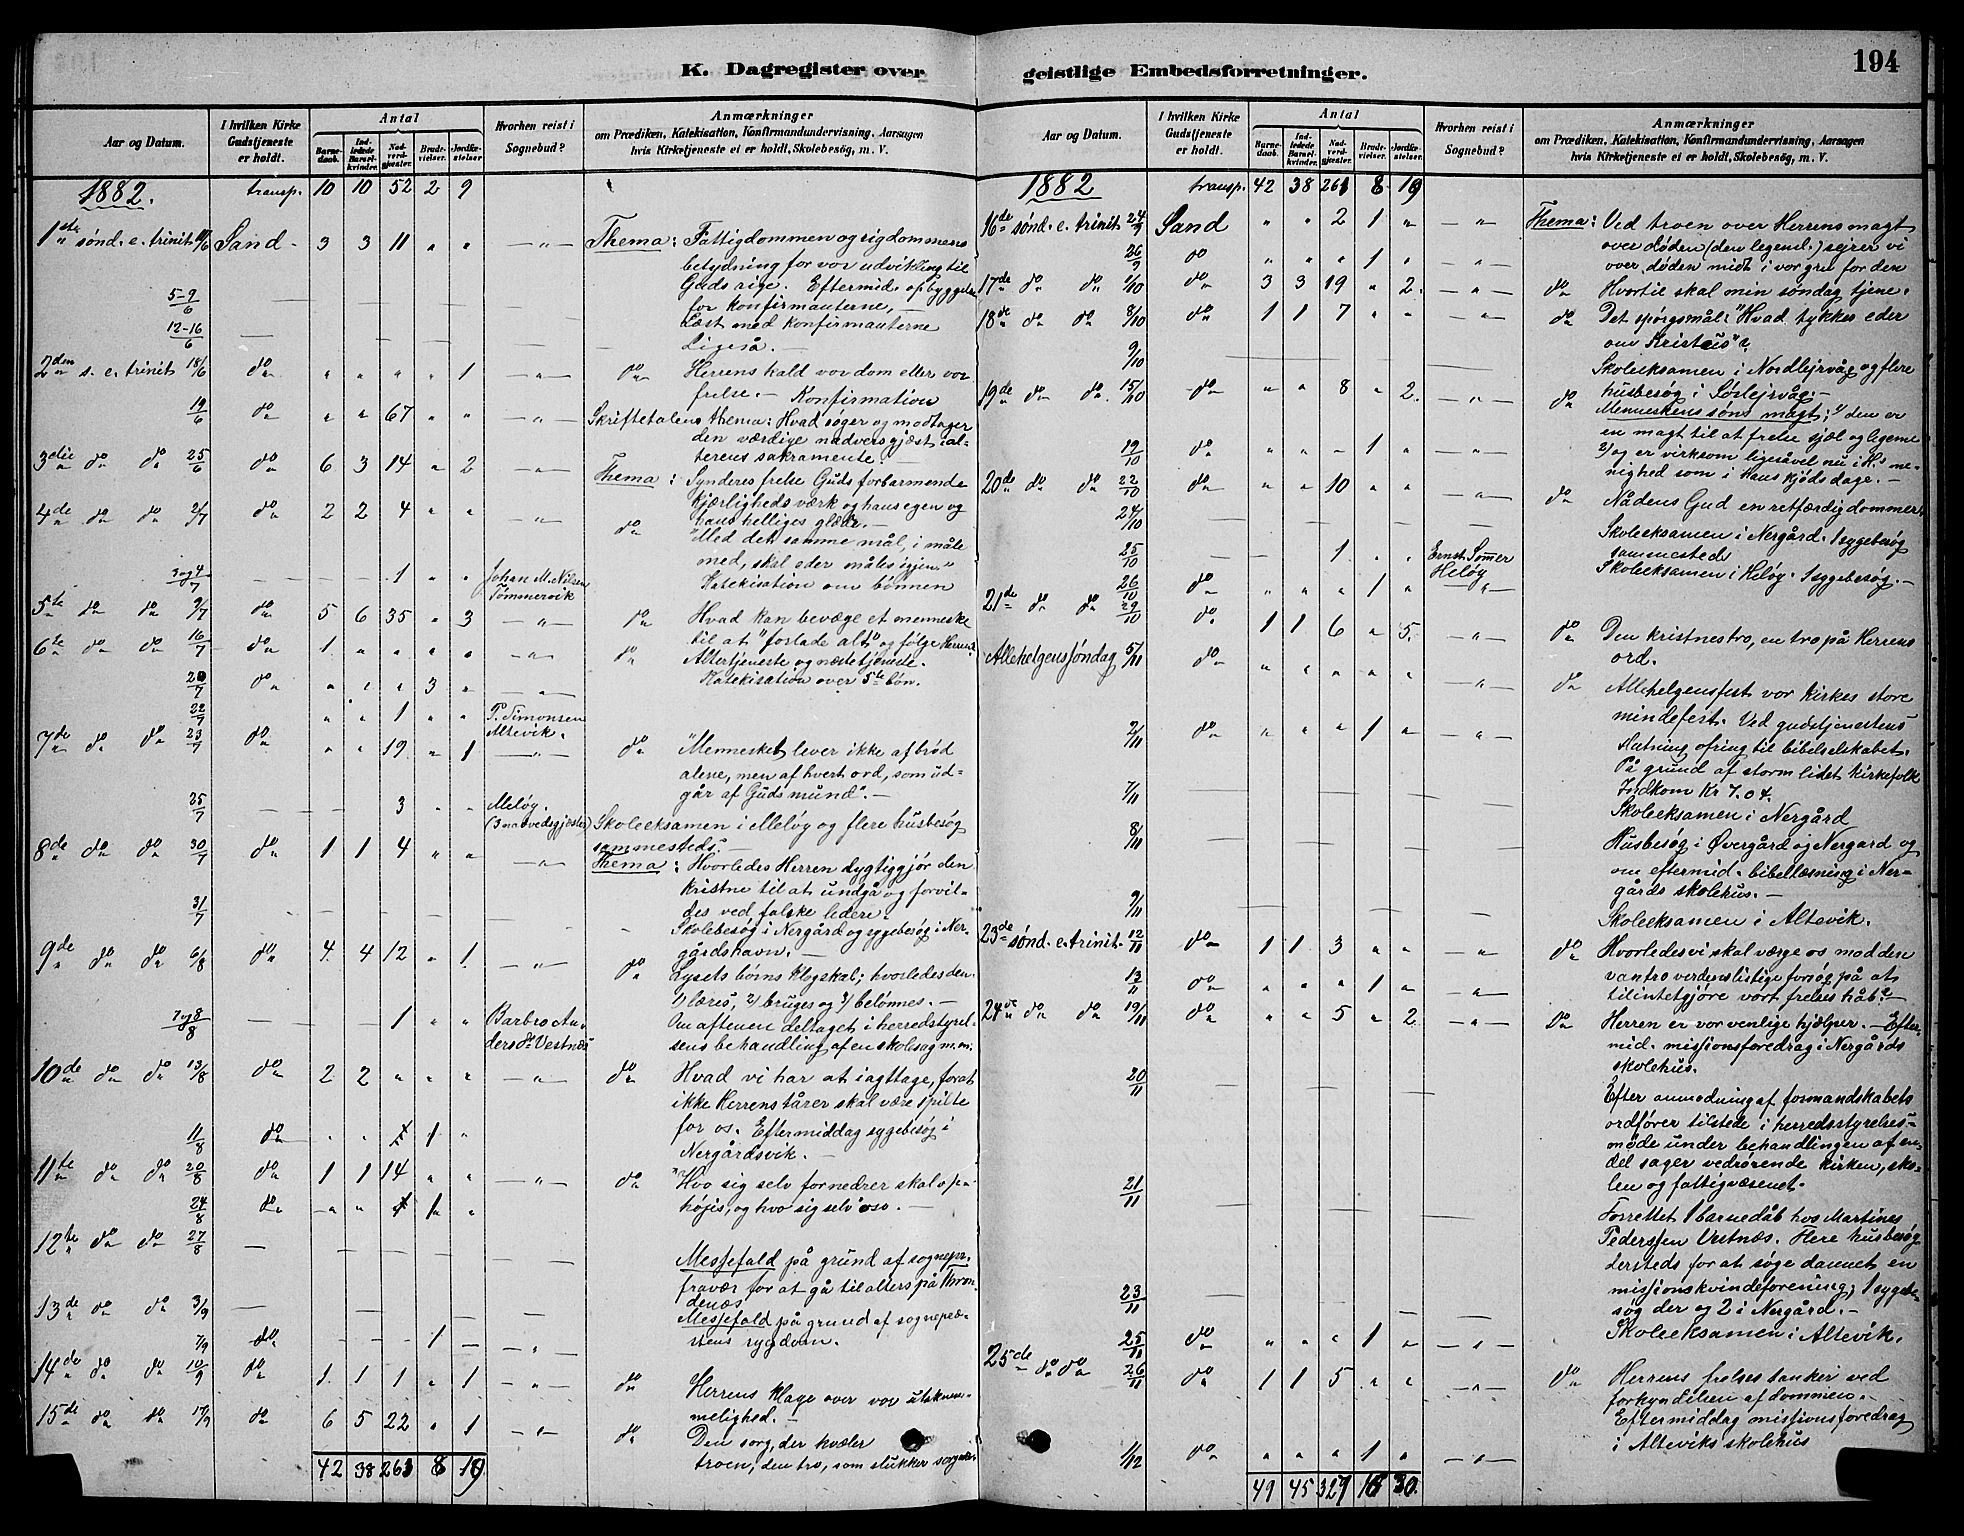 K. Dagregister over
Aar og Datum.
I hvilken Kirke Gudstjeneste er holdt.
Antal
Barnedaab.
Indledede Barselkvinder.
Nadverdgjester.
Brudevielser.
Jordfæstelser
Hvorhen reist i Sognebud?
Anmærkninger
om Prædiken, Katekisation, Konfirmandundervisning, Aarsagen
hvis Kirketjeneste ei er holdt, Skolebesög, m. V.
1882. transp. 10 10 52 2 9
1ste sønd. e. trinit 11/6 Sand 3 3 11 " " —"— Thema: Fattigdommen og rigdommens
betydning for vor udvikling til
Guds rige. Eftermid. opbyggelse
5-9/6 for konfirmanterne.—
Læst med konfirmanterne
12-16/6 — Ligeså.—
2den s. e. trinit 18/6 do " " " " 1 —"— do Herrens kald vor dom eller vor
frelse.— Konfirmation
19/6 do " " 67 " " —"— Skriftetalens thema: Hvad søger og modtager
den værdige nadversgjæst i al-
terens sakramente.—
3die do do 25/6 do 6 3 14 " 2 —"— Thema: Synderes frelse Guds forbarmende
kjærligheds værk og hans egen og
hans helliges glæde.—
4de do do 2/7 do 2 2 4 " " —"— do "Med det samme mål, i måle
med, skal eder måles igjen."
3og4/7 — — — 1 " " Johan M. Nilsen Tømmervik Katekisation om bønnen
5te do do 9/7 do 5 6 35 " 3 —"— do Hvad kan bevæge et menneske
til at "forlade alt" og følge Herren?
6te do do 16/7 do 1 " " " " —"— do Altertjeneste og næstetjenede.
Katekisation over 5te bøn.
20/7 do " " " 3 " —"—
22/7 " " 1 " " P. Simonsen Altevik.
7de do do 23/7 do " " 19 " 1 —"— do "Mennesket lever ikke af brød
alene, men af hvert ord, som ud-
går af Guds mund".—
25/7 — — — 3 " " Meløy. (3 nadvedsgjæster) Skoleeksamen i Meløy og flere husbesøg
sammesteds.
8de do do 30/7 do 1 1 4 " " —"— Thema: Hvorledes Herren dygtiggjør den
kristne til at undgå og forvil-
des ved falske ledere.
31/7 — Skolebesøg i Nergård og sygebesøg i Ner-
gårdshavn.—
9de do do 6/8 do 4 4 12 " 1 —"— do Lysets børns klogskab; hvorledes den
1) læres, 2) bruges og 3) belønnes.—
7og8/8 1 " " Barbro An- Om aftenen deltaget i herredstyrel-
ders dr Vestnæs sens behandling af en skolesag m.m.
10de do do 13/8 do 2 2 " " " —"— do Hvad vi har at iagttage, forat
ikke Herrens tårer skal være spilte
for os. Eftermiddag sygebesøg i
11/8 do " " 1 " Nergårdsvik.—
11te do do 20/8 do 1 1 14 " " —"— do "Hvo sig selv fornedrer skal op-
24/8 do " " 1 " højes, og hvo sig selv oso.—
12te do do 27/8 — Messefald på grund af sognepr.
fravær for at gå til alters på Thron
denæs
13de do do 3/9 — Messefald på grund af sognepræ-
7/9 do — — — 1 — —"— stens sygdom.
14de do do 10/9 do 1 1 1 " 1 —"— do Herrens klage over vor utaknem-
melighed.—
15de do do 17/9 do 6 5 22 " 1 —"— do Den sorg, der kvæler
troen, den tro, som slukker sorgen.
42 38 263 8 19
geistlige Embedsforretninger.
194
Aar og Datum.
I hvilken Kirke Gudstjeneste er holdt.
Antal
Barnedaab.
Indledede Barselkvinder.
Nadverdgjester.
Brudevielser.
Jordfæstelser.
Hvorhen reist i Sognebud?
Anmærkninger
om Prædiken, Katekisation, Konfirmandundervisning, Aarsagen
hvis Kirketjeneste ei er holdt, Skolebesög, m. V.
1882 transp. 42 38 261 8 19
16de sønd. e. trinit 24/9 Sand " " 2 1 " —"— Thema: Ved troen over Herrens magt
over døden (den legeml.) sejrer vi
26/9 do " " " 1 " —"— over døden midt i vor gru for den
17de do do 1/10 do 3 3 19 " 2. —"— do Hvortil skal min søndag tjene.
18de do do 8/10 do 1 1 7 " " —"— do Det spørgsmål: "Hvad tykkes eder
om Kristus"?
9/10 — Skoleeksamen i Nordlejrvåg og flere
husbesøg i Sørlejrvåg.—
19de do do 15/10 do " " 8 " 2. —"— do Menneskens søns magt; 1) den er
en magt til at frelse sjæl og legeme
19/10 do " " " 1 " —"— 2) og er virksom ligesåvel nu i H's me-
nighed som i Hans kjøds dage.—
20de do do 22/10 do " " 10 " " —"— do Nådens Gud en retfærdig dommer.
24/10 — Skoleeksamen i Nergård. 1 sygebesøg
sammesteds
25/10 — 1 " " Ernst Sømer Heløy Skoleeksamen i Heløy. 1 sygebesøg.—
26/10 do " " " 1 " "
21de do do 29/10 do 1 1 6 " 5. —"— do Den kristnes tro, en tro på Herrens
ord.
Allehelgenssøndag 5/11 do " " " " " —"— do Allehelgensfest vor kirkes store
mindefest. Ved gudstjenestens
2/11 do " " " 1 " —"— slutning ofring til bibelselskabet.
På grund af storm lidet kirkefolk
7/11 — Indkom Kr 7.04.
Skoleeksamen i Nergård
8/11 — Husbesøg i Øvergård og Nergard og
om eftermid. bibellæsning i Ner-
gårds skolehus.—
9/11 — Skoleeksamen i Altevik.
23de sønd. e. trinit. 12/11 do 1 1 3 " " —"— do Hvorledes vi skal værge os mod den
vantro verdens listige forsøg på at
13/11 do " " " 1 " —"— tilintetgjøre vort frelses håb?—
24de do do 19/11 do " " 5 " 2 —"— do Herren er vor venlige hjælper.— Efter-
mid. missionsforedrag i Nergårds
skolehus.
20/11 — Efter anmodning af formandskabets
ordfører tilstede i herredsstyrelses-
møde under behandlingen af en-
del sager vedrørende kirken, sko-
len og fattigvæsenet.
21/11 — Forrettet 1 barnedåb hos Martines
Pederssen Vestnæs. Flere husbesøg
dersteds for at søge dannet en
missionskvindeforening; 1 sygebe-
søg der og 2 i Nergård.—
23/11 — Skoleeksamen i Altevik.
25/11 do " " " 1 " —"—
25de do do 26/11 do 1 1 5 " " —"— do Herrens frelsestanker ved
forkyndelsen af dommen.—
Eftermiddag missionsforedrag
i Alteviks skolehus
1/12 do " " " 1 " —"—
49 45 327 18 30.